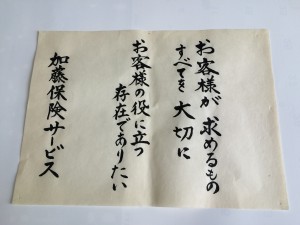 お客様が 求めるもの
すべてを 大切に
お客様の役に立つ
存在でありたい
加藤保険サービス